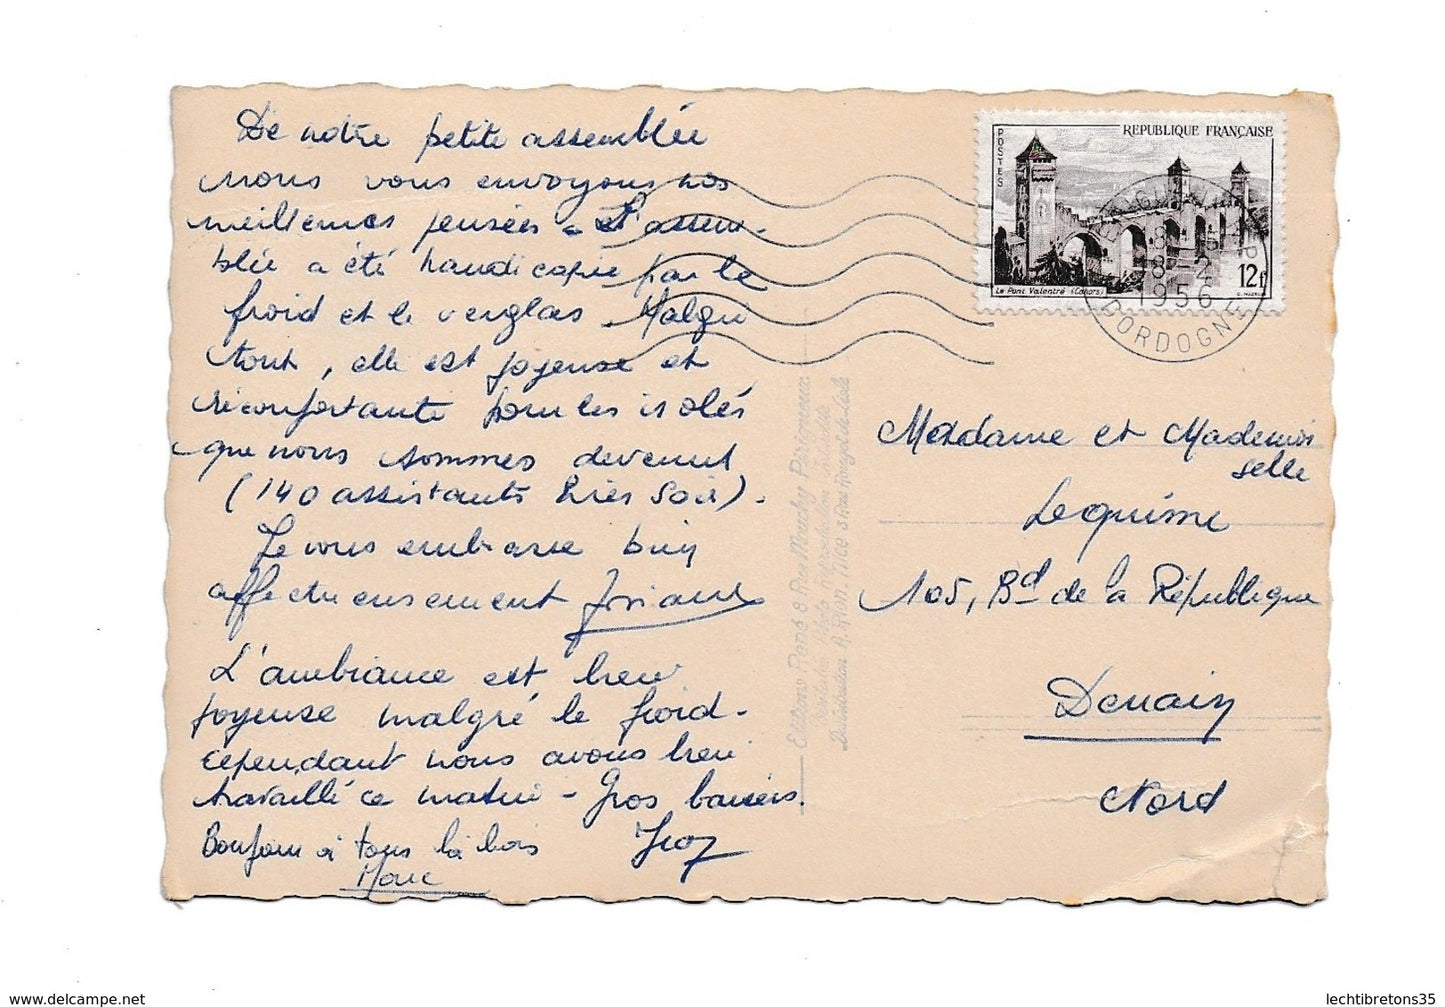 De notre petite assemblée
nous vous envoyons nos
meilleures pensées - L'assem-
blée a été handicapée par le
froid et le verglas. Malgré
tout, elle est joyeuse et
réconfortante pour les isolés
que nous sommes devenus
(140 assistants hier soir).
Je vous embrasse bien
affectueusement
L'ambiance est bien
joyeuse malgré le froid -
cependant nous avons bien
travaillé ce matin - Gros baisers.
Bonjour à tous là bas
Editions Rans 8 Rue Mouchy Périgueux
Véritable Photo reproduction interdite
Distribution A. Rion. Nice 3 Rue Rouget de Lisle
POSTES
REPUBLIQUE FRANÇAISE
Le Pont Valentré (Cahors)
12f
1956
DORDOGNE
Madame et Mademoi
selle
Lequime
105, Bd de la République
Denain
Nord
www.delcampe.net
lechtibretons35